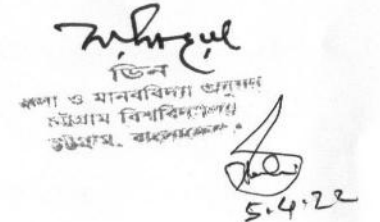 ডিন
কলা ও মানববিদ্যা অনুষদ
চট্টগ্রাম বিশ্ববিদ্যালয়
চট্টগ্রাম, বাংলাদেশ।
5.4.22